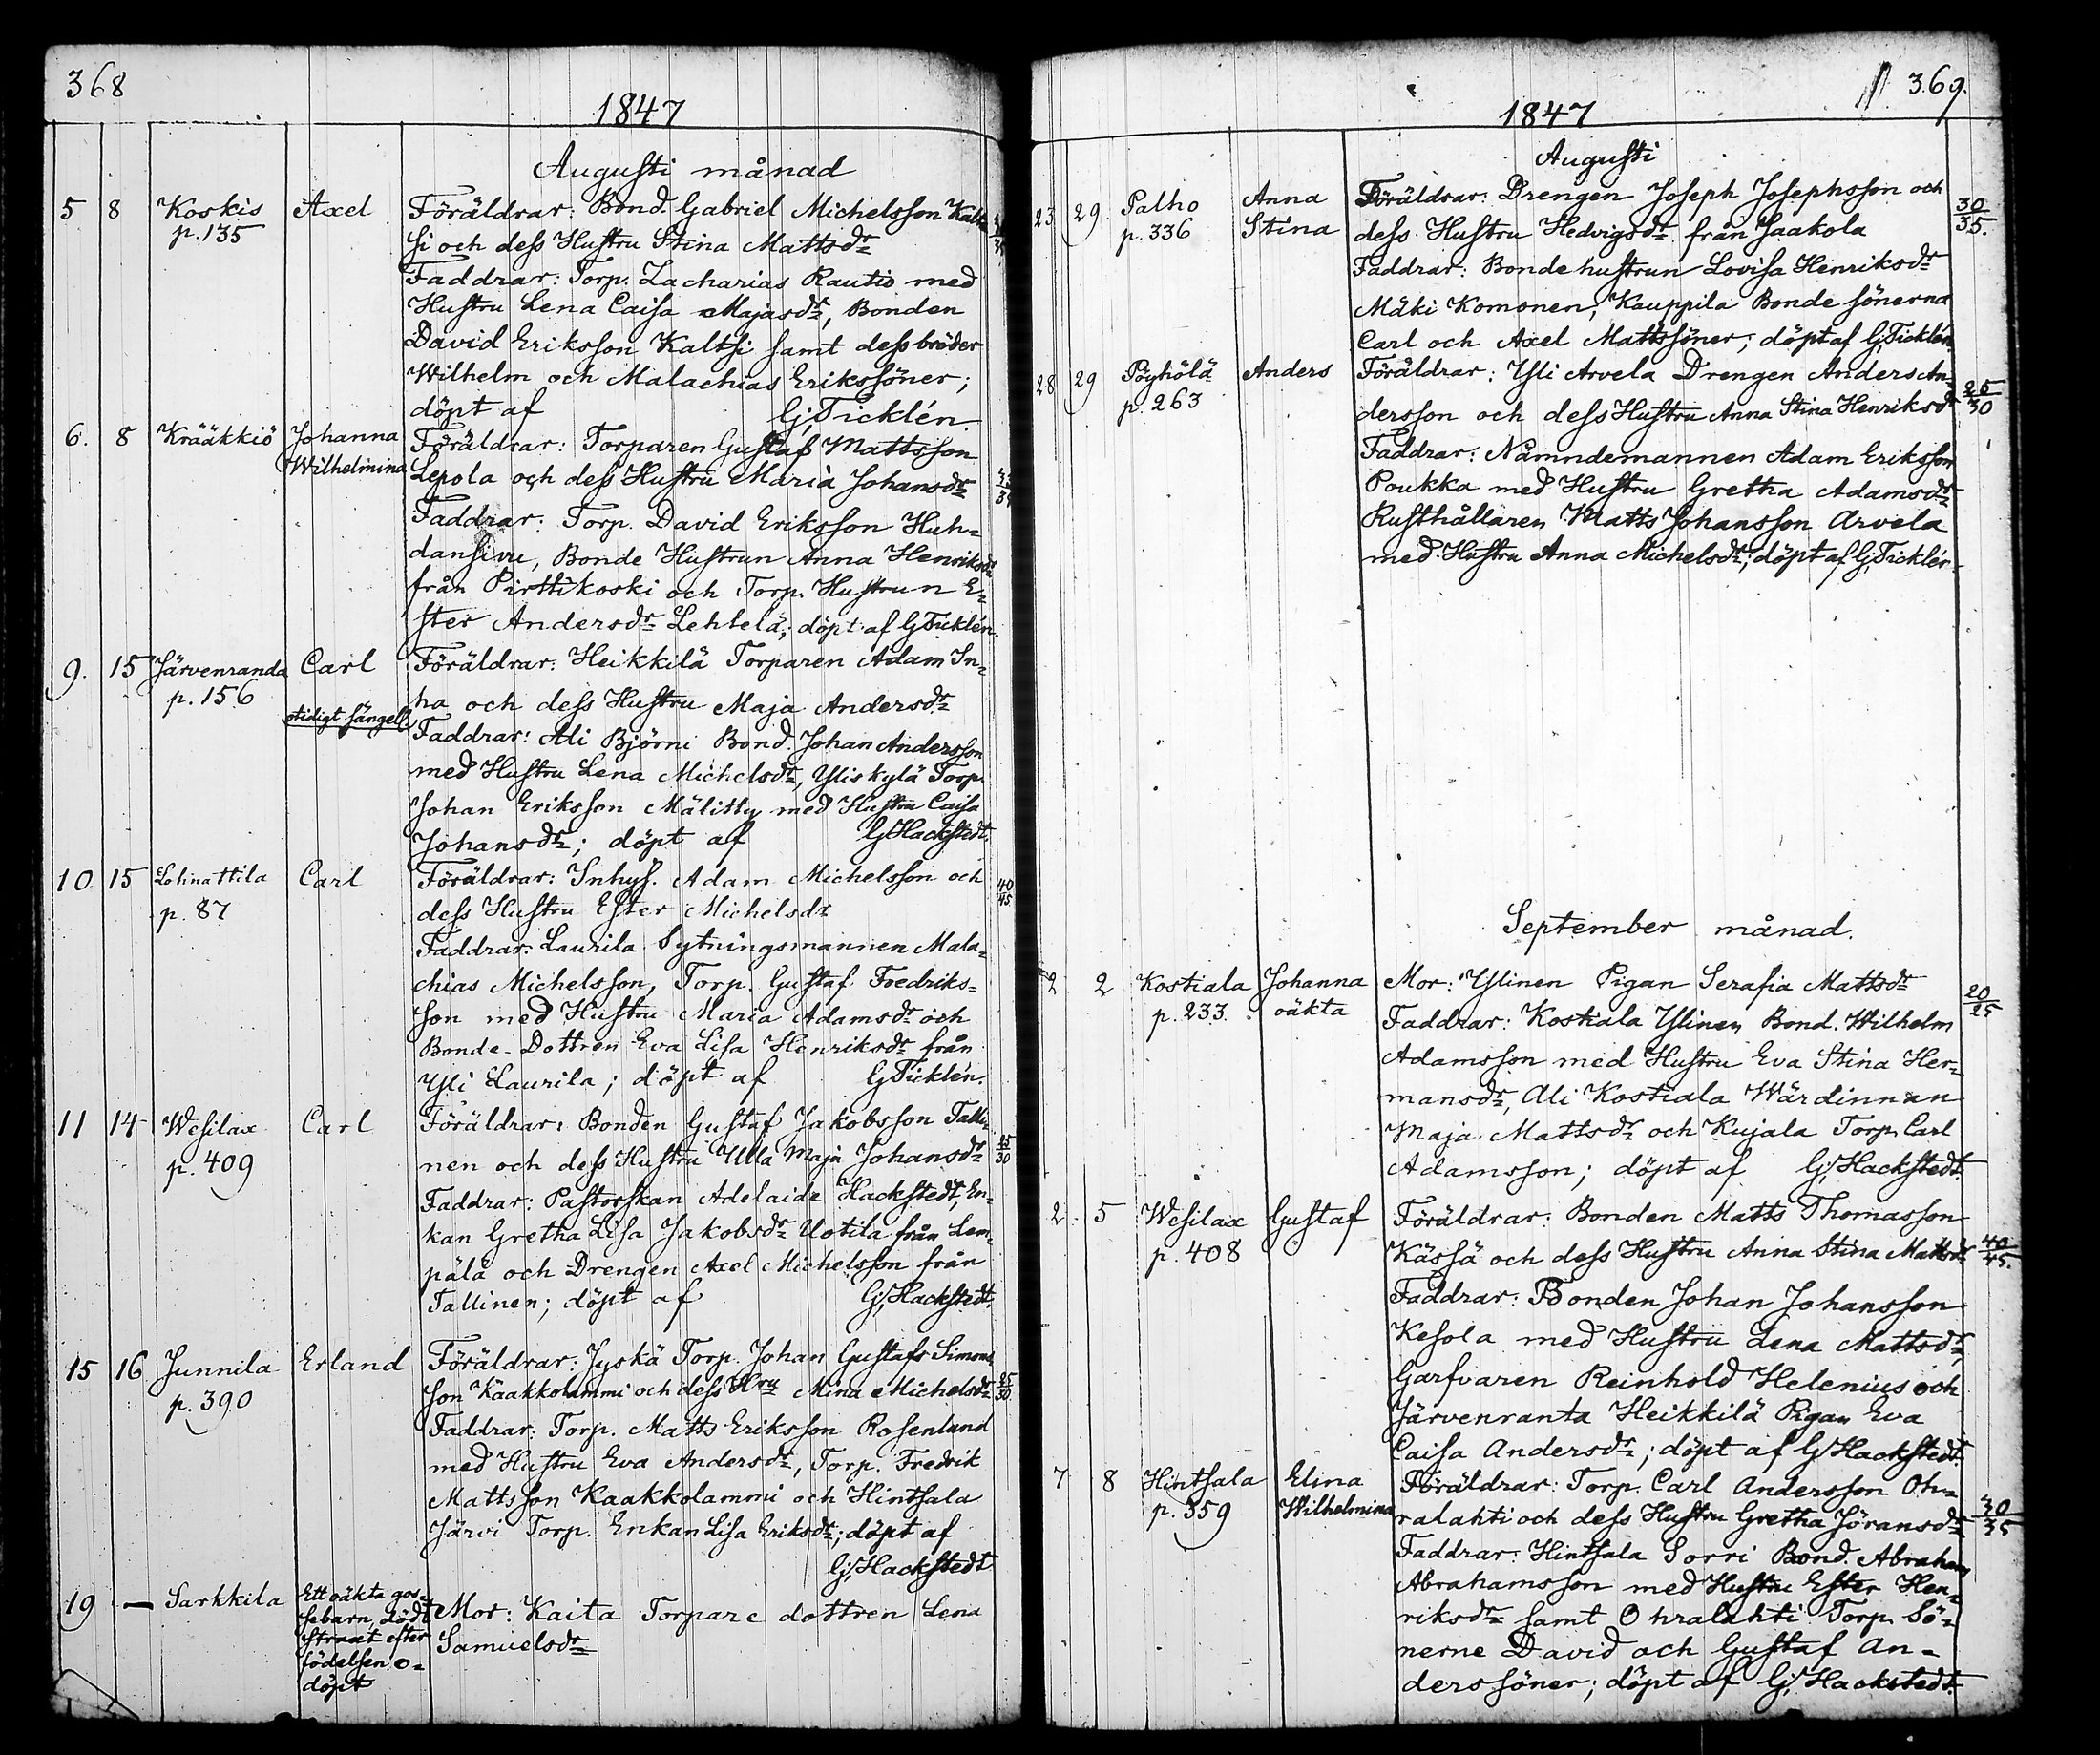 368
1847
Augusti månad
5 8 Koskis Axel Föräldrar: Bond. Gabriel Michelsson Kalt-
p. 135 si och dess Hustru Stina Mattsdr
Faddrar: Torp. Zacharias Rautio med
Hustru Lena Caisa Majasdr, Bonden
David Eriksson Kaltsi samt dess bröder
Wilhelm och Malachias Erikssöner;
döpt af G, Ticklén.
6. 8 Krääkkiö Johanna Föräldrar: Torparen Gustaf Mattsson
Wilhelmina Lepola och dess Hustru Maria Johansdr
Faddrar: Torp. David Eriksson Huh-
dansivu, Bonde Hustrun Anna Henriksdr
från Pirttikoski och Torp. Hustrun E-
ster Andersdr Lehtelä; döpt af G, Ticklén.
9. 15 Järvenranda Carl Föräldrar: Heikkilä Torparen Adam In-
p. 156 ha och dess Hustru Maja Andersdr
otidigt sängel. Faddrar: Ali Björni Bond. Johan Andersson
med Hustru Lena Michelsdr, Yliskylä Torp.
Johan Eriksson Mälitty med Hustru Caisa
Johansdr; döpt af G, Hackstedt.
10 15 Lohnattila Carl Föräldrar: Inhys. Adam Michelsson och 40/45
p. 87 dess Hustru Ester Michelsdr
Faddrar: Laurila Sytningsmannen Mala-
chias Michelsson, Torp. Gustaf Fredriks-
son med Hustru Maria Adamsdr och
Bonde-Dottren Eva Lisa Henriksdr från
Yli Laurila; döpt af G, Ticklén.
11 14 Wesilax Carl Föräldrar: Bonden Gustaf Jakobsson Talli-
p. 409 nen och dess Hustru Ulla Maja Johansdr 25/30
Faddrar: Pastorskan Adelaide Hackstedt, En-
kan Gretha Lisa Jakobsdr Uotila från Lem-
pälä och Drengen Axel Michelsson från
Tallinen; döpt af G, Hackstedt.
15 16 Junnila Erland Föräldrar: Jyskä Torp. Johan Gustafs Simons
p. 390 son Kaakkolammi och dess Hru Mina Michelsdr 25/30
Faddrar: Torp. Matts Eriksson Rosenlund
med Hustru Eva Andersdr, Torp. Fredrik
Mattsson Kaakkolammi och Hintsala
Järvi Torp. Enkan Lisa Eriksdr; döpt af
G, Hackstedt
19 — Sarkkila Ett oäkta gos-
sebarn, dödt Mor: Kaita Torpare dottren Lena
straxt efter Samuelsdr
födelsen o-
döpt
369.
1847
Augusti
23 29. Palho Anna Föräldrar: Drengen Joseph Josephsson och 30/35.
p. 336 Stina dess Hustru Hedvigsdr från Jaakola
Faddrar: Bondehustrun Lovisa Henriksdr
Mäki Komonen, Kauppila Bonde sönerna
Carl och Axel Mattssöner; döpt af G, Ticklén.
28 29 Pöyhölä Anders Föräldrar: Yli Arvela Drengen Anders An-
p. 263 dersson och dess Hustru Anna Stina Henriksdr 25/30
Faddrar: Nämndemannen Adam Eriksson
Poukka med Hustru Gretha Adamsdr
Rusthållaren Matts Johansson Arvela
med Hustru Anna Michelsdr; döpt af G, Ticklén.
September månad.
2 2 Kostiala Johanna Mor: Ylinen Pigan Serafia Mattsdr 20/25
p. 233. oäkta Faddrar: Kostiala Ylinen Bond. Wilhelm
Adamsson med Hustru Eva Stina Her-
mansdr, Ali Kostiala Wärdinnan
Maja Mattsdr och Kujala Torp. Carl
Adamsson; döpt af G, Hackstedt.
2. 5 Wesilax Gustaf Föräldrar: Bonden Matts Thomasson
p. 408 Kässä och dess Hustru Anna Stina Mattsdr 40/45.
Faddrar: Bonden Johan Johansson
Kesola med Hustru Lena Mattsdr,
Garfvaren Reinhold Helenius och
Järvenranta Heikkilä Pigan Eva
Caisa Andersdr; döpt af G, Hackstedt.
7 8 Hintsala Elina Föräldrar: Torp. Carl Andersson Oh-
p. 359 Wilhelmina ralahti och dess Hustru Gretha Göransdr 30/35
Faddrar: Hintsala Sorri Bond. Abraham
Abrahamsson med Hustru Ester Hen-
riksdr samt Ohralahti Torp. Sö-
nerne David och Gustaf An-
derssöner; döpt af G, Hackstedt.